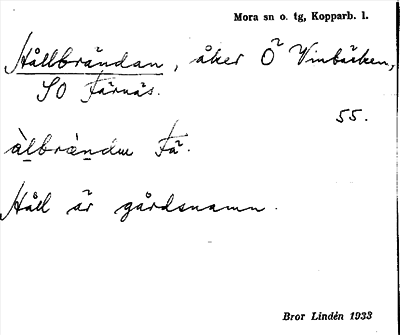 Mora sn o. tg, Kopparb. l.
Hållbrändan, åker Ö Vinbäcken,
SO Färnäs.
55.
Fä.
Håll är gårdsnamn.
Bror Lindén 1933